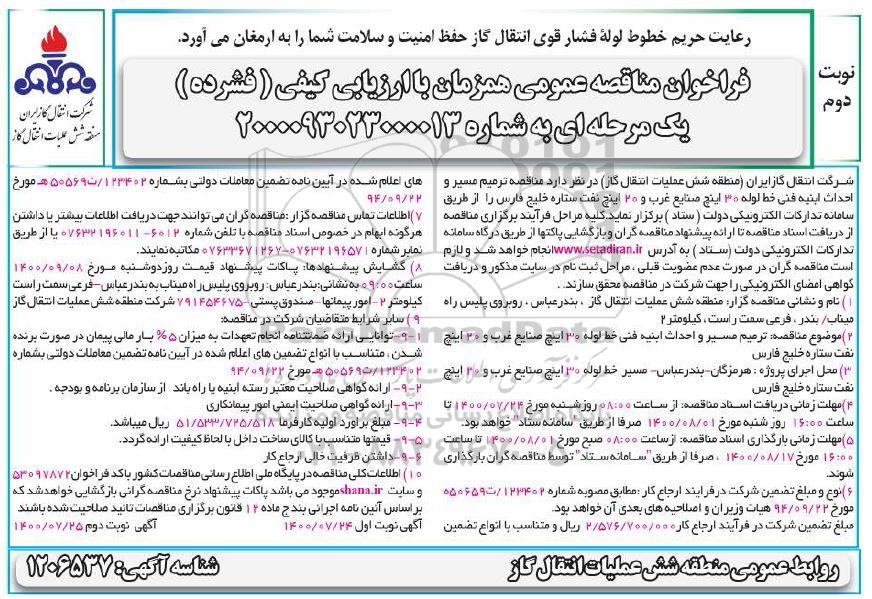 رعایت حریم خطوط لولۀ فشار قوی انتقال گاز حفظ امنیت و سلامت شما را به ارمغان می آورد.
نوبت
دوم
فراخوان مناقصه عمومی همزمان با ارزیابی کیفی ( فشرده )
یک مرحله ای به شماره ۲۰۰۰۰۹۳۰۲۳۰۰۰۰۱۳
شرکت انتقال گاز ایران
منطقه شش عملیات انتقال گاز
شرکت انتقال گاز ایران (منطقه شش عملیات انتقال گاز) در نظر دارد مناقصه ترمیم مسیر و
احداث ابنیه فنی خط لوله ۳۰ اینچ صنایع غرب و ۲۰ اینچ نفت ستاره خلیج فارس را از طریق
سامانه تدارکات الکترونیکی دولت ( ستاد ) برگزار نماید.کلیه مراحل فرآیند برگزاری مناقصه
از دریافت اسناد مناقصه تا ارائه پیشنهاد مناقصه گران و بازگشایی پاکتها از طریق درگاه سامانه
تدارکات الکترونیکی دولت (ستاد ) به آدرس www.setadiran.ir انجام خواهد شد و لازم
است مناقصه گران در صورت عدم عضویت قبلی ، مراحل ثبت نام در سایت مذکور و دریافت
گواهی امضای الکترونیکی را جهت شرکت در مناقصه محقق سازند. .
۱) نام و نشانی مناقصه گزار: منطقه شش عملیات انتقال گاز ، بندرعباس ، روبروی پلیس راه
میناب/ بندر ، فرعی سمت راست ، کیلومتر۲
۲)موضوع مناقصه: ترمیم مسیر و احداث ابنیه فنی خط لوله ۳۰ اینچ صنایع غرب و ۲۰ اینچ
نفت ستاره خلیج فارس
۳) محل اجرای پروژه : هرمزگان-بندرعباس- مسیر خط لوله ۳۰ اینچ صنایع غرب و ۲۰ اینچ
نفت ستاره خلیج فارس
۴)مهلت زمانی دریافت اسناد مناقصه: از ساعت ۰۸:۰۰ روز شنبه مورخ ۱۴۰۰/۰۷/۲۴ تا
ساعت ۱۶:۰۰ روز شنبه مورخ ۱۴۰۰/۰۸/۰۱ صرفا از طریق "سامانه ستاد" خواهد بود.
۵)مهلت زمانی بارگذاری اسناد مناقصه: ازساعت ۰۸:۰۰ صبح مورخ ۱۴۰۰/۰۸/۰۱ تا ساعت
۱۶:۰۰ مورخ ۱۴۰۰/۰۸/۱۷ ، صرفا از طریق "سامانه ستاد" توسط مناقصه گران بارگذاری
شوند.
۶)نوع و مبلغ تضمین شرکت در فرایند ارجاع کار : مطابق مصوبه شماره ۱۲۳۴۰۲/ت۵۰۶۵۹
مورخ ۹۴/۰۹/۲۲ هیات وزیران و اصلاحیه های بعدی آن خواهد بود.
مبلغ تضمین شرکت در فرآیند ارجاع کار ۲/۵۷۶/۷۰۰/۰۰۰ ریال و متناسب با انواع تضمین
های اعلام شده در آیین نامه تضمین معاملات دولتی بشماره ۱۲۳۴۰۲/ت۵۰۵۶۹هـ مورخ
۹۴/۰۹/۲۲
۷)اطلاعات تماس مناقصه گزار :مناقصه گران می توانند جهت دریافت اطلاعات بیشتر یا داشتن
هرگونه ابهام در خصوص اسناد مناقصه با تلفن شماره ۶۰۱۲-۰۷۶۳۲۱۹۶۰۱۱ یا از طریق
نمابر شماره ۰۷۶۳۲۱۹۶۵۷۱-۰۷۶۳۳۶۷۱۲۶۷ مکاتبه نمایند.
۸) گشایش پیشنهادها: پاکات پیشنهاد قیمت روز دوشنبه مورخ ۱۴۰۰/۰۹/۰۸
ساعت ۰۹:۰۰ به نشانی:بندرعباس: روبروی پلیس راه میناب به بندرعباس-فرعی سمت راست
کیلومتر ۲-امور پیمانها -صندوق پستی-۷۹۱۴۵۴۶۷۵ شرکت منطقه شش عملیات انتقال گاز
۹) سایر شرایط متقاضیان شرکت در مناقصه:
۹-۱- توانایی ارائه ضمانتنامه انجام تعهدات به میزان ۵% بار مالی پیمان در صورت برنده
شدن ، متناسب با انواع تضمین های اعلام شده در آیین نامه تضمین معاملات دولتی بشماره
۱۲۳۴۰۲/ت۵۰۵۶۹هـ مورخ ۹۴/۰۹/۲۲
۹-۲- ارائه گواهی صلاحیت معتبر رسته ابنیه یا راه باند از سازمان برنامه و بودجه .
۹-۳-ارائه گواهی صلاحیت ایمنی امور پیمانکاری
۹-۴- مبلغ برآورد اولیه کارفرما ۵۱/۵۳۳/۷۲۵/۵۱۸ ریال میباشد.
۹-۵- قیمتها متناسب با کالای ساخت داخل با لحاظ کیفیت ارائه گردد.
۹-۶-داشتن ظرفیت خالی ارجاع کار
۱۰) اطلاعات کلی مناقصه در پایگاه ملی اطلاع رسانی مناقصات کشور با کد فراخوان ۵۳۰۹۷۸۷۲
و سایت shana.ir موجود می باشد پاکات پیشنهاد نرخ مناقصه گرانی بازگشایی خواهد شد که
بر اساس آئین نامه اجرایی بند ج ماده ۱۲ قانون برگزاری مناقصات تائید صلاحیت شده باشند
آگهی نوبت اول ۱۴۰۰/۰۷/۲۴ آگهی نوبت دوم ۱۴۰۰/۰۷/۲۵
روابط عمومی منطقه شش عملیات انتقال گاز
شناسه آگهی: ۱۲۰۶۵۳۷